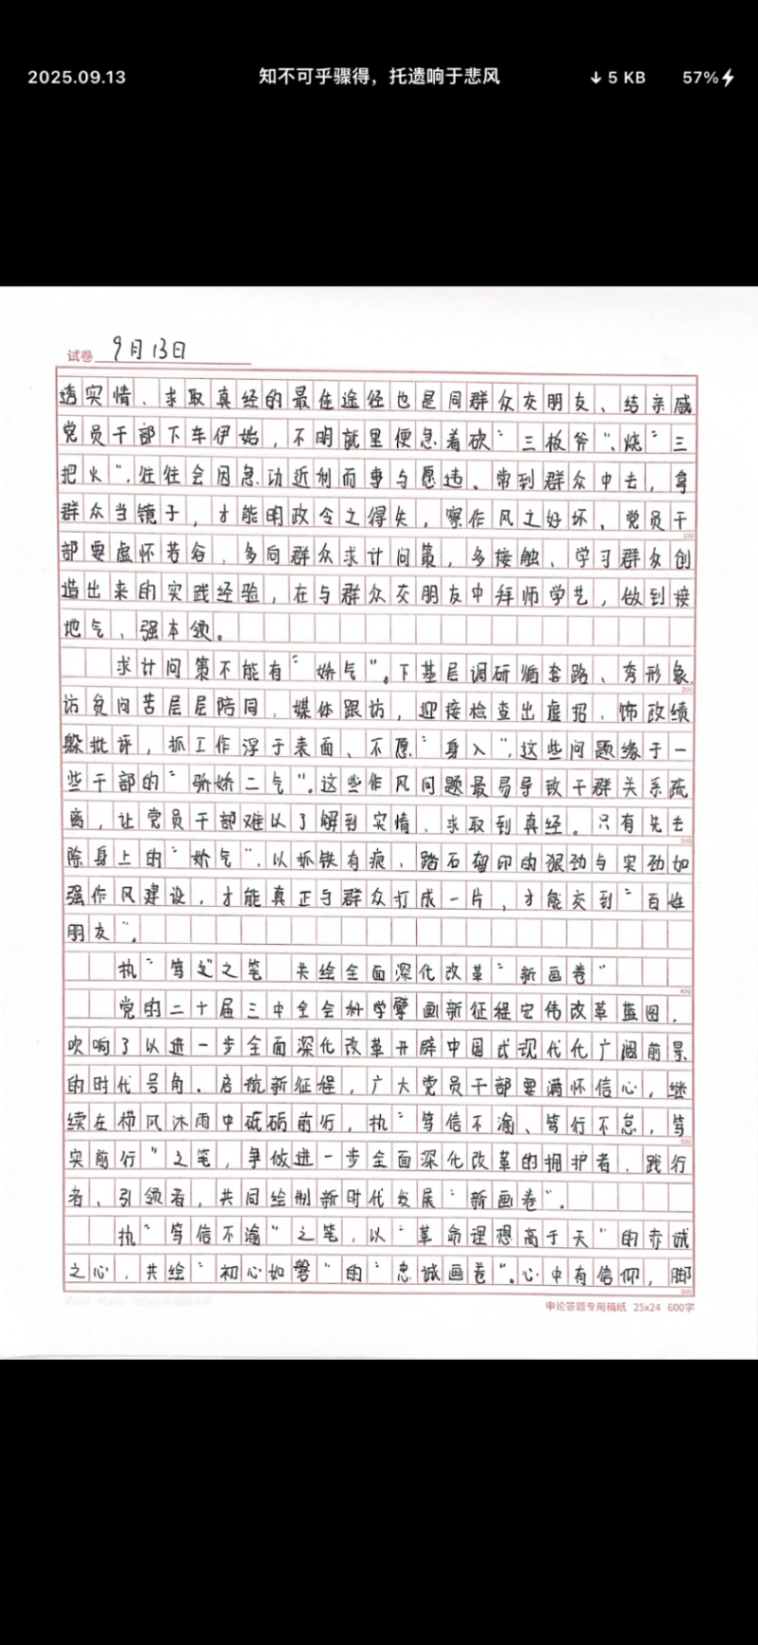 2025.09.13 知不可乎骤得，托遗响于悲风 ↓5 KB 57%
试卷 9月13日
透实情、求取真经的最佳途径也是同群众交朋友、结亲戚
党员干部下车伊始，不明就里便急着砍“三板斧”、烧“三
把火”，往往会因急功近利而事与愿违。常到群众中去，拿
群众当镜子，才能明政令之得失，察作风之好坏、党员干
部要虚怀若谷，多向群众求计问策，多接触、学习群众创
造出来的实践经验，在与群众交朋友中拜师学艺，做到接
地气、强本领。
求计问策不能有“娇气”。下基层调研循套路、秀形象，
访贫问苦层层陪同，媒体跟访，迎接检查出虚招，饰政绩
躲批评，抓工作浮于表面、不愿“身入”，这些问题缘于一
些干部的“骄娇二气”。这些作风问题最易导致干群关系疏
离，让党员干部难以了解到实情，求取到真经。只有先去
除身上的“娇气”，以抓铁有痕、踏石留印的狠劲与实劲加
强作风建设，才能真正与群众打成一片，才能交到“百姓
朋友”。
执“笃定”之笔 共绘全面深化改革“新画卷”
党的二十届三中全会科学擘画新征程宏伟改革蓝图，
吹响了以进一步全面深化改革开辟中国式现代化广阔前景
的时代号角。启航新征程，广大党员干部要满怀信心，继
续在栉风沐雨中砥砺前行，执“笃信不渝、笃行不怠，笃
实前行”之笔，争做进一步全面深化改革的拥护者、践行
者、引领者，共同绘制新时代发展“新画卷”。
执“笃信不渝”之笔，以“革命理想高于天”的赤诚
之心，共绘“初心如磐”的“忠诚画卷”。心中有信仰，脚
申论答题专用稿纸 25x24 600字